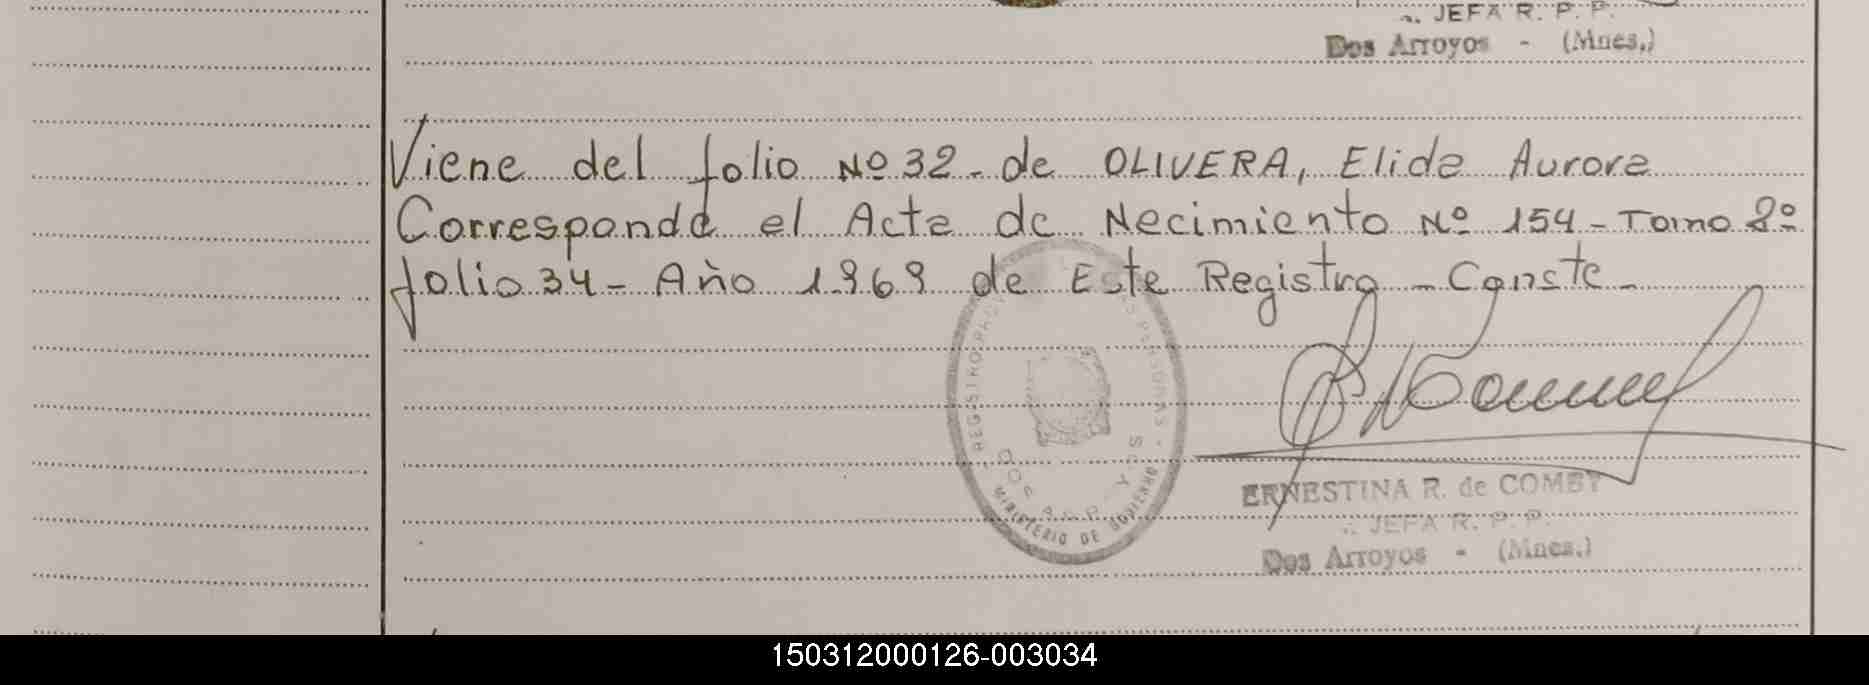 JEFA R. P. P.
Dos Arroyos - (Mnes.)
Viene del folio Nº 32 - de OLIVERA, Elida Aurora
Corresponde al Acta de Nacimiento Nº 154 - Tomo 2º
folio 34 - Año 1969 de Este Registro - Conste -
REGISTRO PERSONAS
DOS ARROYOS
MINISTERIO DE GOBIERNO
ERNESTINA R. de COMBY
JEFA R. P. P.
Dos Arroyos - (Mnes.)
150312000126-003034